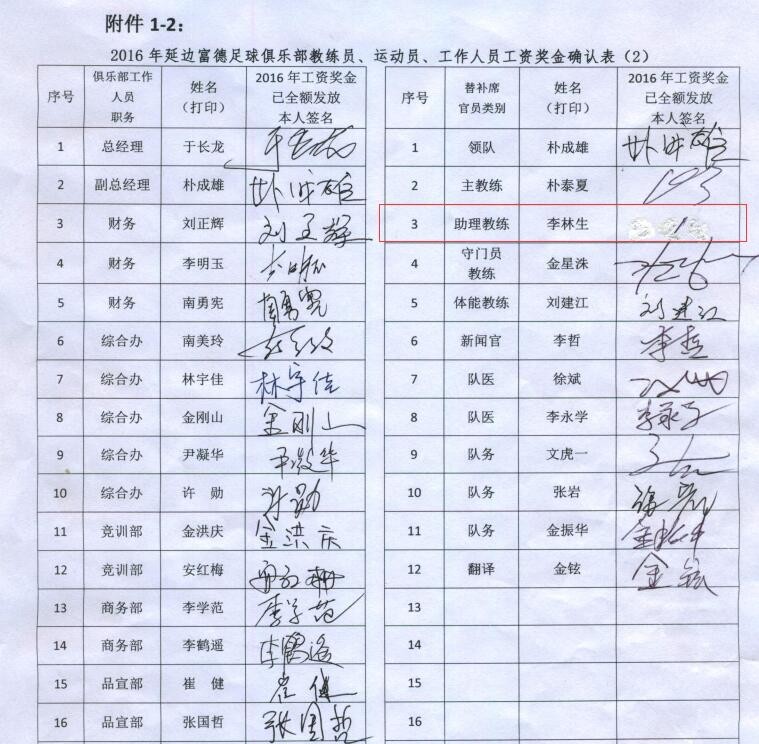 附件 1-2：
2016 年延边富德足球俱乐部教练员、运动员、工作人员工资奖金确认表（2）
序号 俱乐部工作人员职务 姓名（打印） 2016 年工资奖金已全额发放本人签名
1 总经理 于长龙
2 副总经理 朴成雄 朴成雄
3 财务 刘正辉 刘正辉
4 财务 李明玉
5 财务 南勇宪 南勇宪
6 综合办 南美玲
7 综合办 林宇佳 林宇佳
8 综合办 金刚山 金刚山
9 综合办 尹凝华 尹凝华
10 综合办 许 勋 许勋
11 竞训部 金洪庆 金洪庆
12 竞训部 安红梅
13 商务部 李学范 李学范
14 商务部 李鹤遥 李鹤遥
15 品宣部 崔 健 崔健
16 品宣部 张国哲 张国哲
序号 替补席官员类别 姓名（打印） 2016 年工资奖金已全额发放本人签名
1 领队 朴成雄 朴成雄
2 主教练 朴泰夏
3 助理教练 李林生
4 守门员教练 金星洙
5 体能教练 刘建江 刘建江
6 新闻官 李哲 李哲
7 队医 徐斌
8 队医 李永学 李永学
9 队务 文虎一
10 队务 张岩 张岩
11 队务 金振华 金振华
12 翻译 金铉 金铉
13
14
15
16